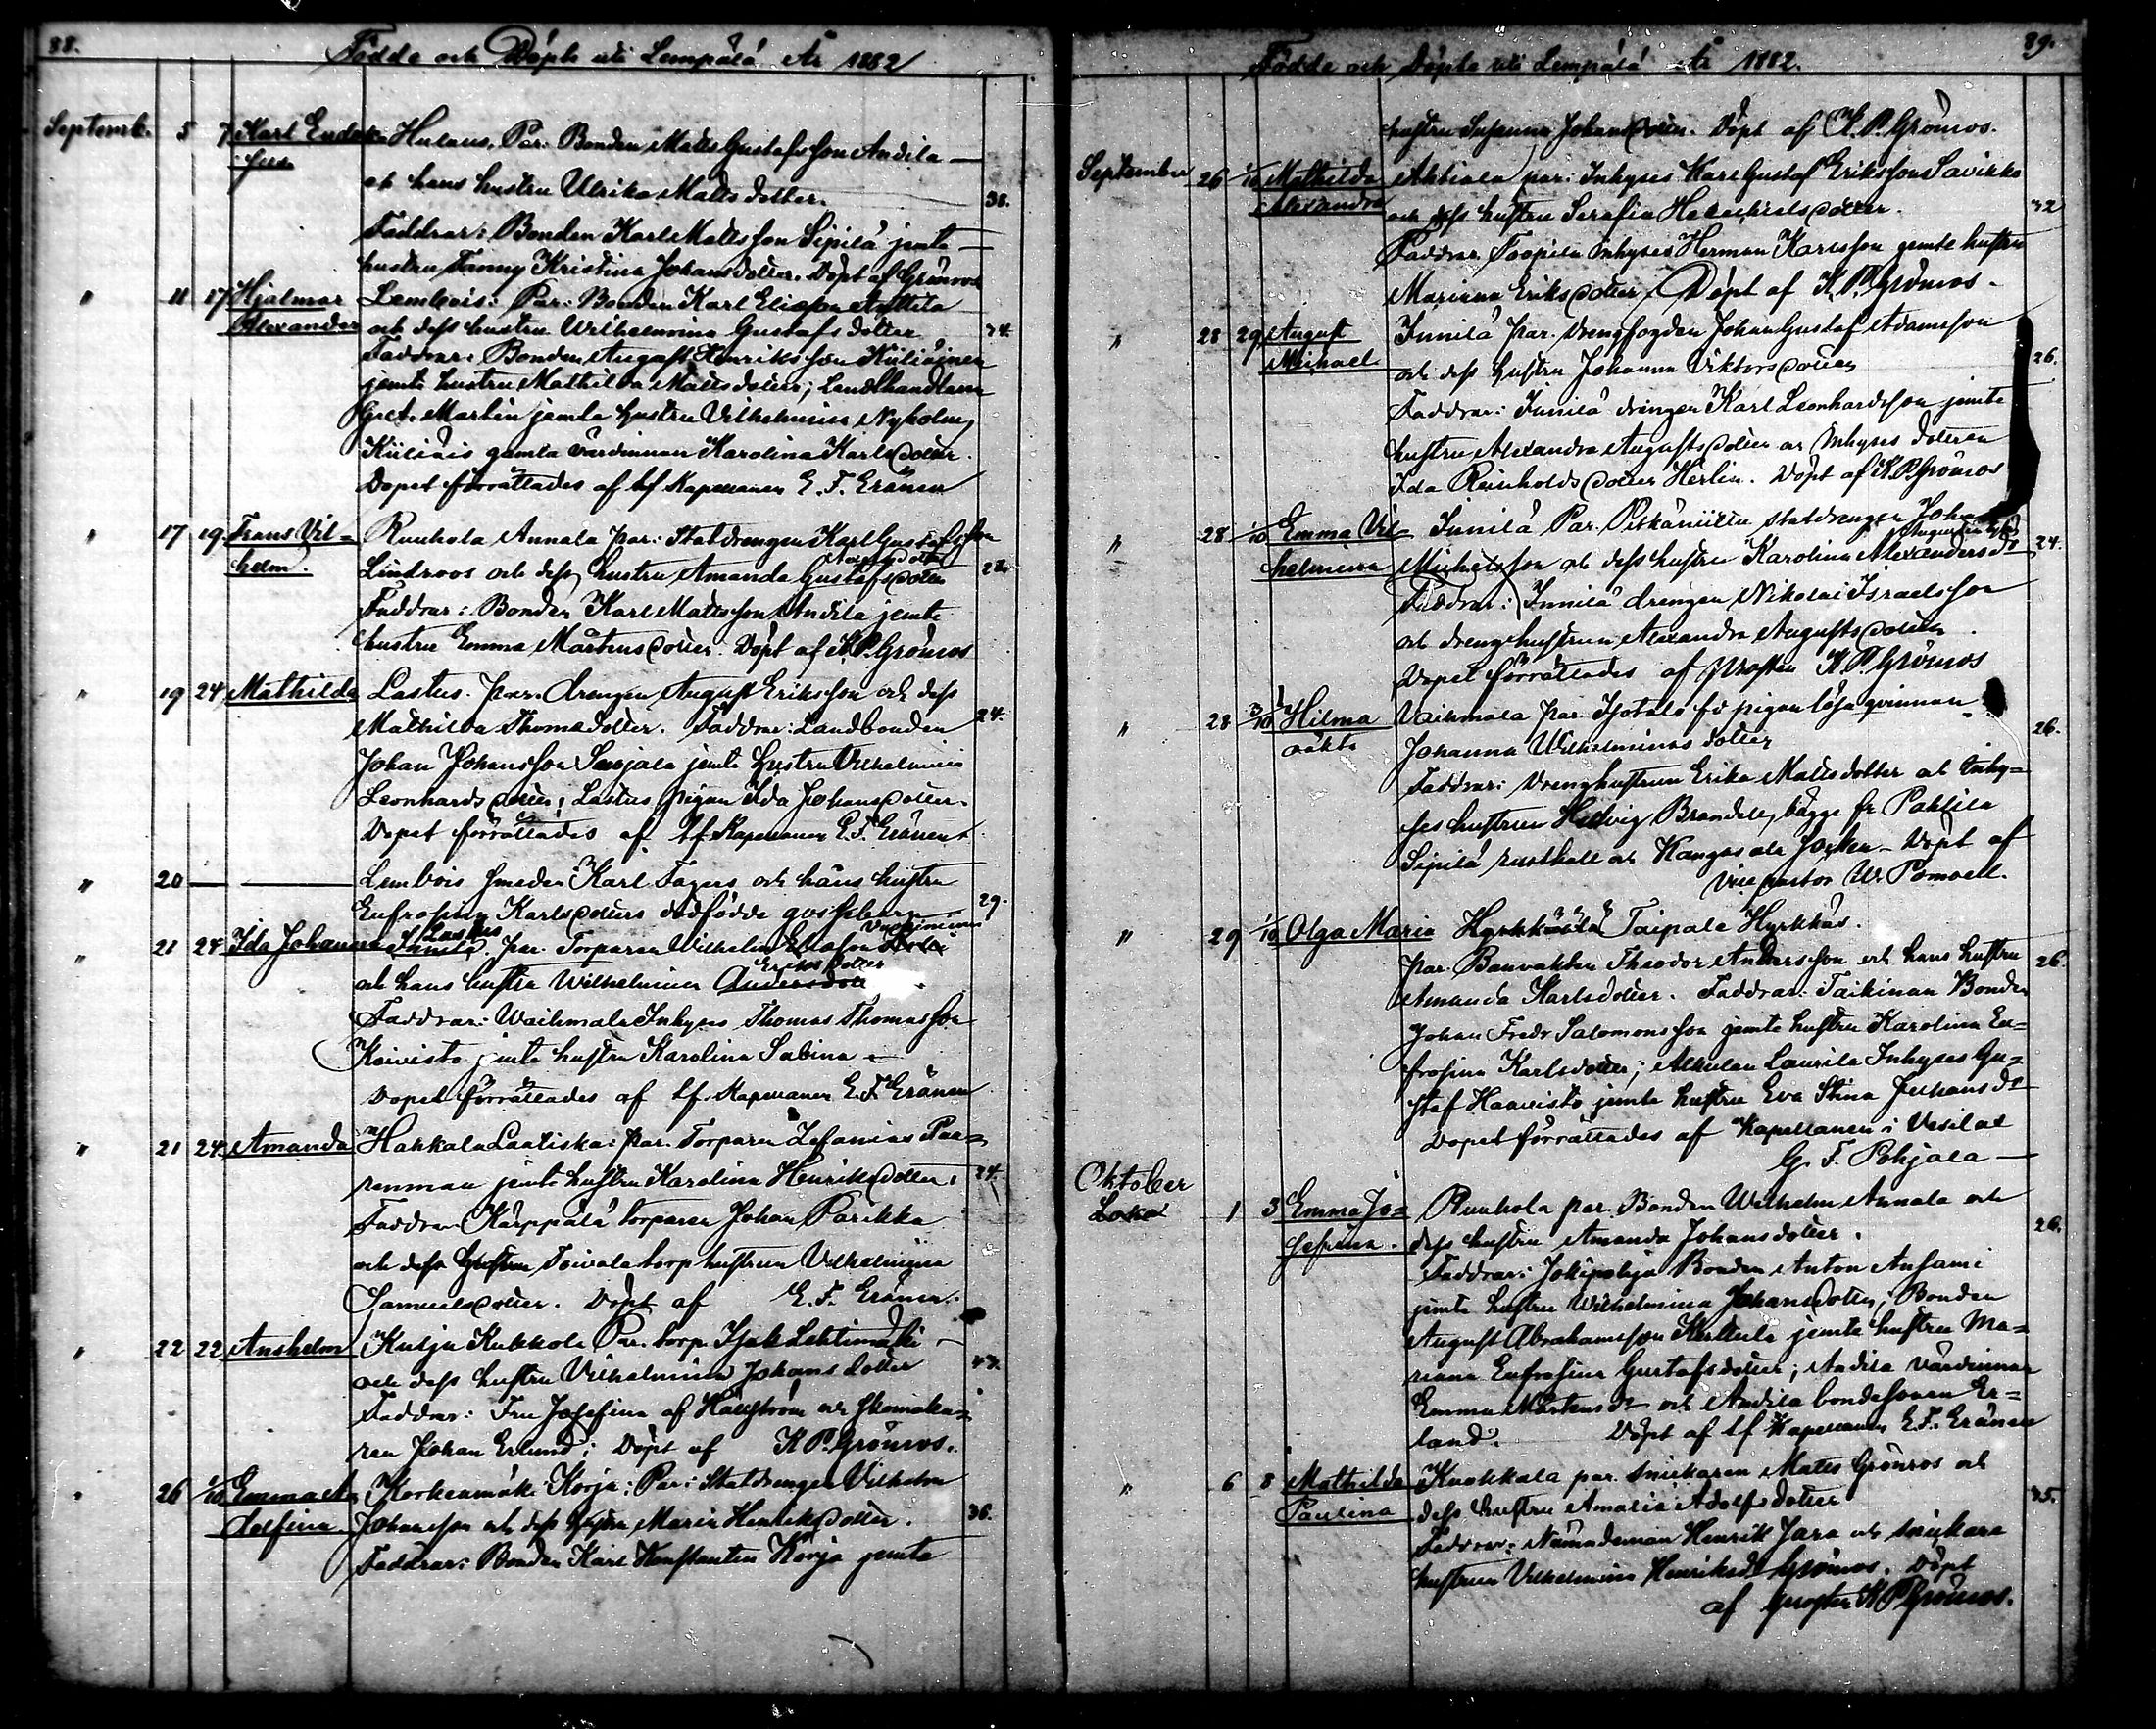 88.
Födde och Döpte uti Lempäälä År 1882
Septemb. 5 7 Karl
Hulaus. Par: Bonden Matts Gustafsson Andila
och hans hustru Ulrika Mattsdotter. 38.
Faddrar: Bonden Karl Mattsson Sipilä jemte
hustru Fanny Kristina Johansdotter. Döpt af Grönroos
" 11 17 Hjalmar Lembois: Par: Bonden Karl Eliasson Anttila
Alexander och dess hustru Wilhelmina Gustafsdotter 34.
Faddrar: Bonden August Henriksson Kuliainen
jemte hustru Mathilda Mattsdotter; Landthandlaren
Martin jemte hustru Vilhelmina Nyholm,
Kuliais gamla värdinnan Karolina Karlsdotter.
Dopet förrättades af tf Kapellanen E. F. Eränen
" 17 19 Frans Vil= Ruuhola Annala par: Statdrengen Karl Gustafsson
helm. Lindroos och dess hustru Amanda Gustafsdotter
Faddrar: Bonden Karl Mattsson Andila jemte
hustru Emma Mårtensdotter. Döpt af K.P. Grönroos
" 19 24 Mathilda Lastus. par. drengen August Eriksson och dess
Mathilda Thomasdotter. Faddrar: Landbonden 24.
Johan Johansson jemte hustru Vilhelmina
Leonhardsdotter; Lastus pigan Ida Johansdotter.
Dopet förrättades af tf Kapellanen E. F. Eränen
" 20 Lembois smeden Karl Fagers och hans hustru
Eufrosina Karlsdotters dödfödde gossebarn 29.
" 21 24 Ida Johanna Lastus par. Torparen Wilhelm Eliasson
Eriksdotter
och hans hustru Wilhelmina Andersdotter
Faddrar: Waihmala Inhyses Thomas Thomasson
Koivisto jemte hustru Karolina Sabina
Dopet förrättades af tf. Kapellanen E. F. Eränen
" 21 24 Amanda Hakkala Laatiska: par. Torparen Zefanias Paa=
renmaa jemte hustru Karolina Henriksdotter. 24.
Faddrar Kärppälä torparen Johan Parikka
och dess hustru Toivola torp hustrun Vilhelmina
Samuelsdotter. Döpt af E. F. Eränen.
" 22 22 Anshelm Kulju Kukkola Par. torp. Isak Lehtimäki
och dess hustru Vilhelmina Johansdotter 43.
Faddrar: Fru Josefina af Hällström och skomaka=
ren Johan Erlund; Döpt af K P. Grönroos.
26 1/10 Emma A= Korkeamäki Korja: Par: Statdrengen Vilhelm
dolfina Johansson och dess hustru Maria Henriksdotter. 36.
Faddrar: Bonden Karl Konstantin Korja jemte
89.
Födde och Döpte uti Lempäälä År 1882.
hustru Susanna Johansdotter. Döpt af K. P. Grönroos.
September 26 1/10 Mathilda par: Inhyses Karl Gustaf Eriksson Savikko
Alexandra och dess hustru Serafia Heikelsdotter. 32
Faddrar Inhyses Herman Karlsson jemte hustru
Marianna Eriksdotter. Döpt af K. P. Grönroos.
" 28 29 August Innilä par. Drengfogden Johan Gustaf Adamsson
Michael och dess hustru Johanna Viktorsdotter 26.
Faddrar: Innilä drengen Karl Leonhardsson jemte
hustru Alexandra Augustsdotter och Inhyses dottern
Ida Reinholdsdotter Herlin. Döpt af K.P. Grönroos
" 28 1/10 Emma Vil= Innilä Par. statdrengen Johan
helmina Michelsson och dess hustru Karolina Alexandersdr 24.
Faddrar: Innilä drengen Nikolai Israelsson
och drenghustrun Alexandra Augustsdotter
Dopet förrättades af Prosten K. P. Grönroos
" 28 3/10 Hilma Vaihmala par. Isotalo fd pigan lösa qvinnan
oäkta Johanna Wilhelminas dotter 26.
Faddrar: Drenghustrun Erika Mattsdotter och Inhy=
ses hustrun Hedvig Brandell, bägge fr Pahlila
Sipilä rusthåll och Kangasala socken. Döpt af
Vice pastor W. Pomoell.
" 29 1/10 Olga Maria Taipale Hyrkkäs.
par. Banvakten Theodor Andersson och hans hustru 26.
Amanda Karlsdotter. Faddrar: Taikinan Bonden
Johan Fredr Salomonsson jemte hustru Karolina Eu=
frosina Karlsdotter; Alkulan Laurila Inhyses Gu=
staf Haavisto jemte hustru Eva Stina Juhansdr
Dopet förrättades af Kapellanen i Vesilax
G. F. Pohjala
Oktober
1 3 Emma Jo= Ruuhola par. Bonden Wilhelm Annala och
sefina. dess hustru Amanda Johansdotter. 26.
Faddrar: Jokipohja Bonden Anton Ansami
jemte hustru Wilhelmina Johansdotter; Bonden
August Abrahamsson Kerttula jemte hustru Ma=
riana Eufrosina Gustafsdotter; Andila värdinnan
Emma Mårtensdr och Andila bondesonen Er=
land. Döpt af tf Kapellanen E.F. Eränen
" 6 8 Mathilda Kuokkala par. snickaren Matts Grönroos och
Paulina dess hustru Amalia Adolfsdotter 35.
Faddrar: Nämndeman Henrik Jara och snickare
hustrun Vilhelmina Henriksdr Grönroos. Döpt
af prosten K P Grönroos.